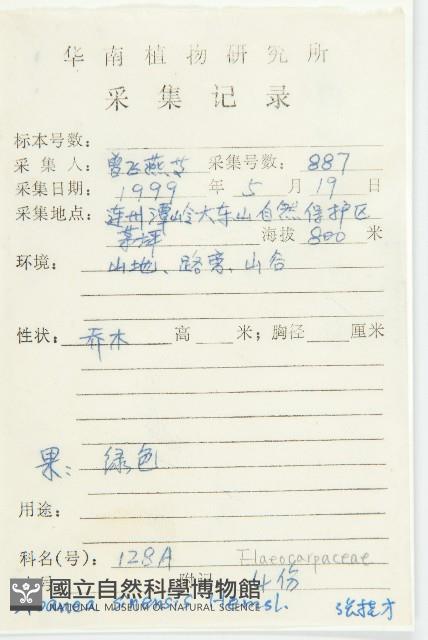 华南植物研究所
采集记录
标本号数：
采集人：曾飞燕等 采集号数：887
采集日期：1999 年 5 月 19 日
采集地点：连州潭岭大东山自然保护区
茶坪 海拔 800 米
环境：山地、路旁、山谷
性状：乔木 高 米；胸径 厘米
果：绿色
用途：
科名(号)：128A Elaeocarpaceae
附记 4份
國立自然科學博物館
NATIONAL MUSEUM OF NATURAL SCIENCE
sinensis Hemsl.